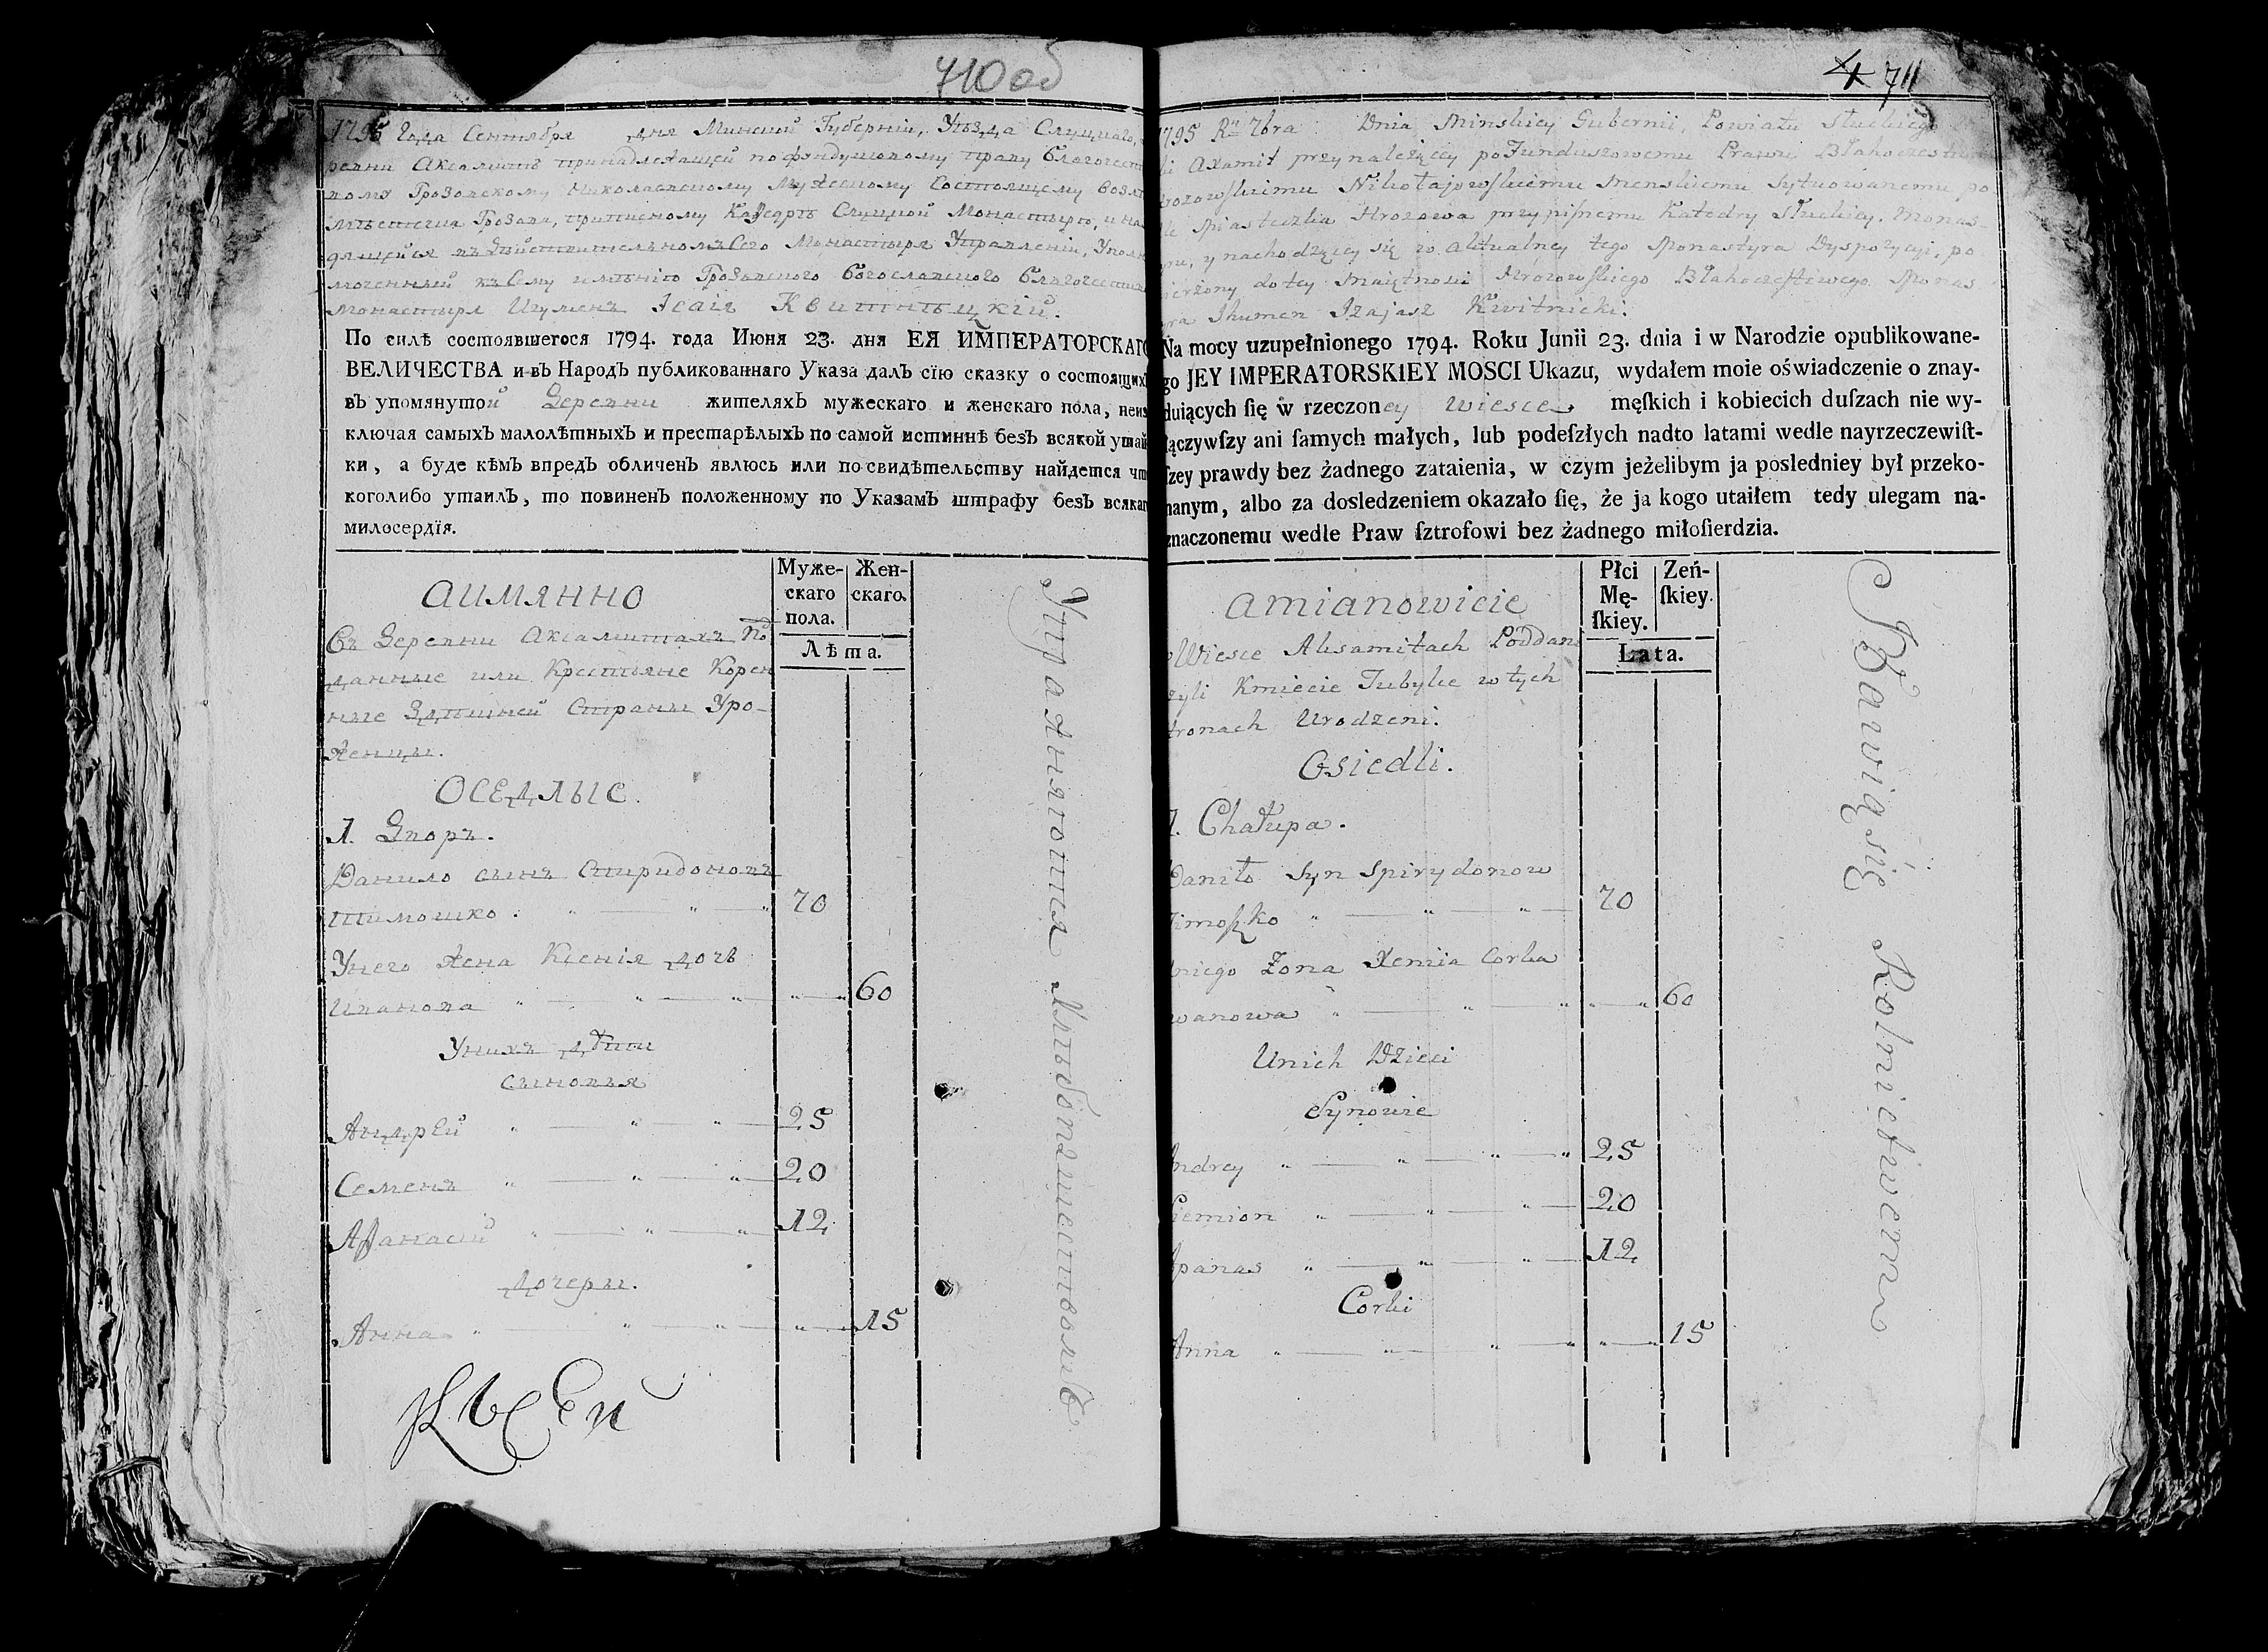 710 об
1795 Года Сентября дня Минской Губернии, Уѣзда Слуцкаго,
ревни Аксамитъ принадлежащей по фундушовому праву благочест
вому Грозовскому Николаевскому Мужескому Состоящему возлѣ
мѣстечка Грозова, приписному Кафедрѣ Слуцкой Монастырю, и нахо
дящейся въ дѣйствительномъ Сего Монастыря Управленіи, Уполно
моченный къ Сему имѣнію Грозовского благочестиваго
монастыря Игуменъ Ісаія Квитнѣцкій.
По силѣ состоявшегося 1794. года Июня 23. дня ЕЯ ИМПЕРАТОРСКАГО
ВЕЛИЧЕСТВА и въ Народъ публикованнаго Указа далъ сїю сказку о состоящихъ
въ упомянутой Деревни жителяхъ мужескаго и женскаго пола, неиз
ключая самыхъ малолѣтныхъ и престарѣлыхъ по самой истиннѣ безъ всякой утай
ки, а буде кѣмъ впредъ обличенъ явлюсь или по свидѣтельству найдется что
коголибо утаилъ, то повиненъ положенному по Указамъ штрафу безъ всякаго
милосердїя.
Муже-
скаго
пола.
Жен-
скаго.
Лѣта.
АИМЯННО
Въ Деревни Аксамитахъ Под
данные или Крестьяне Корен
ные Здѣшней Страны Уро-
женцы.
ОСЕДЛЫЕ.
1. Дворъ.
Данило сынъ Спиридоновъ
Тимошко. 70
Унего жена Ксенія дочь
Иванова 60
Унихъ дѣти
сыновья
Андрей 25
Семенъ 20
Афанасій 12
дочери.
Анна 15
Упражняются Хлѣбопашествомъ
4 711
1795 Rº 7bra Dnia Minskiey Gubernii Powiatu Słuckiego
si Axamit przynależącey po Funduszowemu Prawu Błahoczesti
rozowskiemu Nikołajowskiemu Menskiemu Sytuowanemu po
le Miasteczka Hrozowa przypisnemu Katedry Słuckiey. Monas-
ru, y nachodzącey się w aktualney tego Monastyra Dyspozycyi, po
ierzony do tey Maiętnosci Hrozowskiego Błahoczestiwego Monas
yra Ihumen Izajasz Kwitnicki:
Na mocy uzupełnionego 1794. Roku Junii 23. dnia i w Narodzie opublikowane-
go JEY IMPERATORSKIEY MOSCI Ukazu, wydałem moie oświadczenie o znay-
duiących ſię w rzeczoney wiesce męſkich i kobiecich duſzach nie wy-
łączywſzy ani ſamych małych, lub podeſzłych nadto latami wedle nayrzeczewiſt-
ſzey prawdy bez żadnego zataienia, w czym jeżelibym ja posledniey był przeko-
nanym, albo za dosledzeniem okazało ſię, że ja kogo utaiłem tedy ulegam na-
znaczonemu wedle Praw ſztrofowi bez żadnego miłoſierdzia.
Płci
Mę-
ſkiey.
Zeń-
ſkiey.
Lata.
amianowicie
Wiesce Aksamitach Poddani
czyli Kmiecie Tubylce w tych
tronach Urodzeni.
Osiedli.
1. Chałupa.
Daniło Syn Spirydonow
Timoszko 70
niego Żona Xemia Corka
wanowa 60
Unich Dzieci
Synowie
Andrey 25
Siemion 20
Apanas 12
Corki
Anna 15
Bawią się Rolnictwem